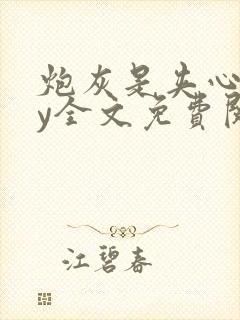 炮灰是失心
y全文免費閱
江碧春